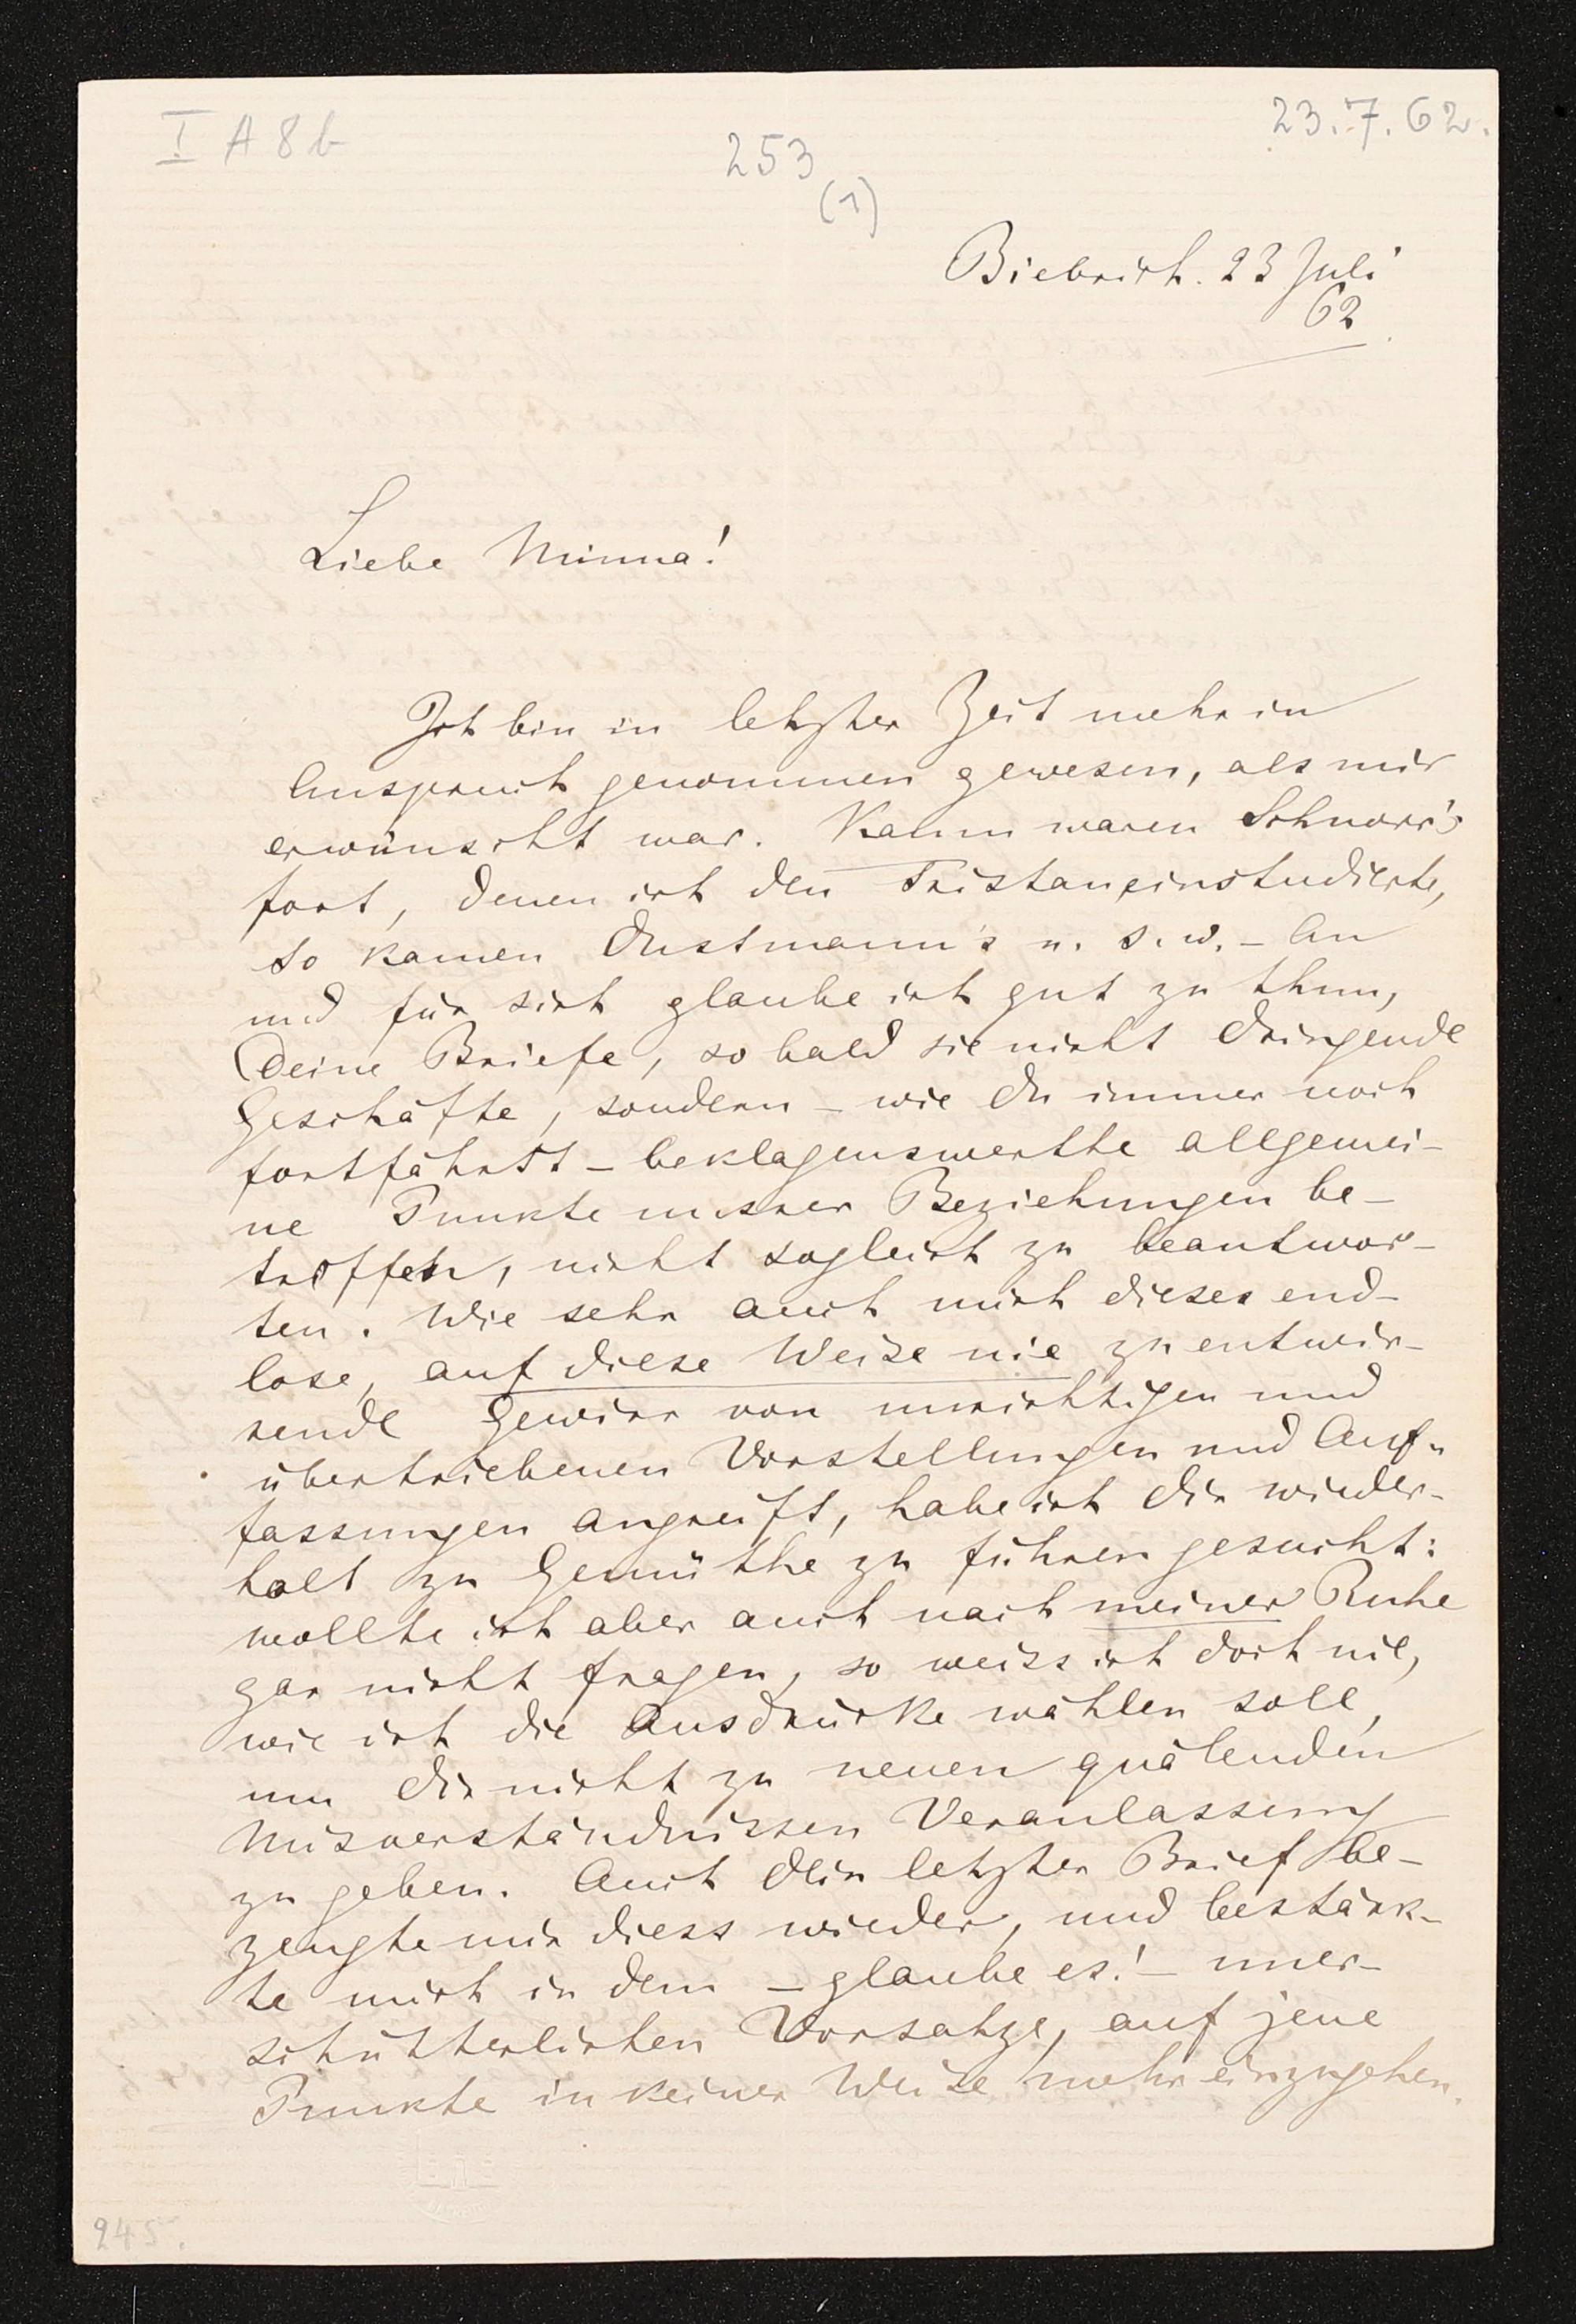 I A 8 b
253
(1)
23.7.62.
Biebrich. 23 Juli
62
Liebe Minna!
Ich bin in letzter Zeit mehr in
Anspruch genommen gewesen, als mir
erwünscht war. Kaum waren Schnorr's
fort, denen ich den Tristan einstudierte,
so kamen Dustmann's u. s. w. – An
und für sich glaube ich gut zu thun,
Deine Briefe, so bald sie nicht dringende
Geschäfte, sondern – wie Du immer noch
fortfährst – beklagenswerthe allgemei-
ne Punkte unsrer Beziehungen be-
treffen, nicht sogleich zu beantwor-
ten. Wie sehr auch mich dieses end-
lose, auf diese Weise nie zu entwir-
rende Gewirr von unrichtigen und
übertriebenen Vorstellungen und Auf-
fassungen angreift, habe ich Dir wieder-
holt zu Gemüthe zu führen gesucht:
wollte ich aber auch nach meiner Ruhe
gar nicht fragen, so weiss ich doch nie,
wie ich die Ausdrücke wählen soll,
um Dir nicht zu neuen quälenden
Misverständnissen Veranlassung
zu geben. Auch Dein letzter Brief be-
zeugte mir diess wieder, und bestärk-
te mich in dem – glaube es! – uner-
schütterlichen Vorsatze, auf jene
Punkte in keiner Weise mehr einzugehen.
245.